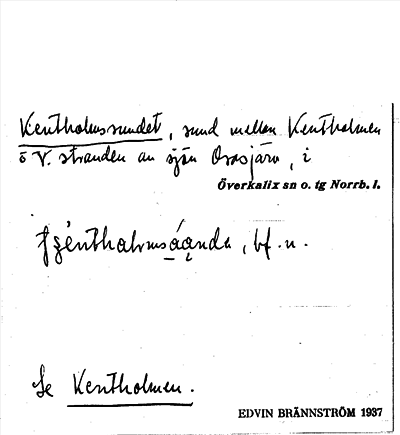 Kentholmssundet, sund mellan Kentholmen
o V. stranden av sjön Orasjärv, i
Överkalix sn o. tg Norrb. l.
bf. n.
Se Kentholmen.
EDVIN BRÄNNSTRÖM 1937